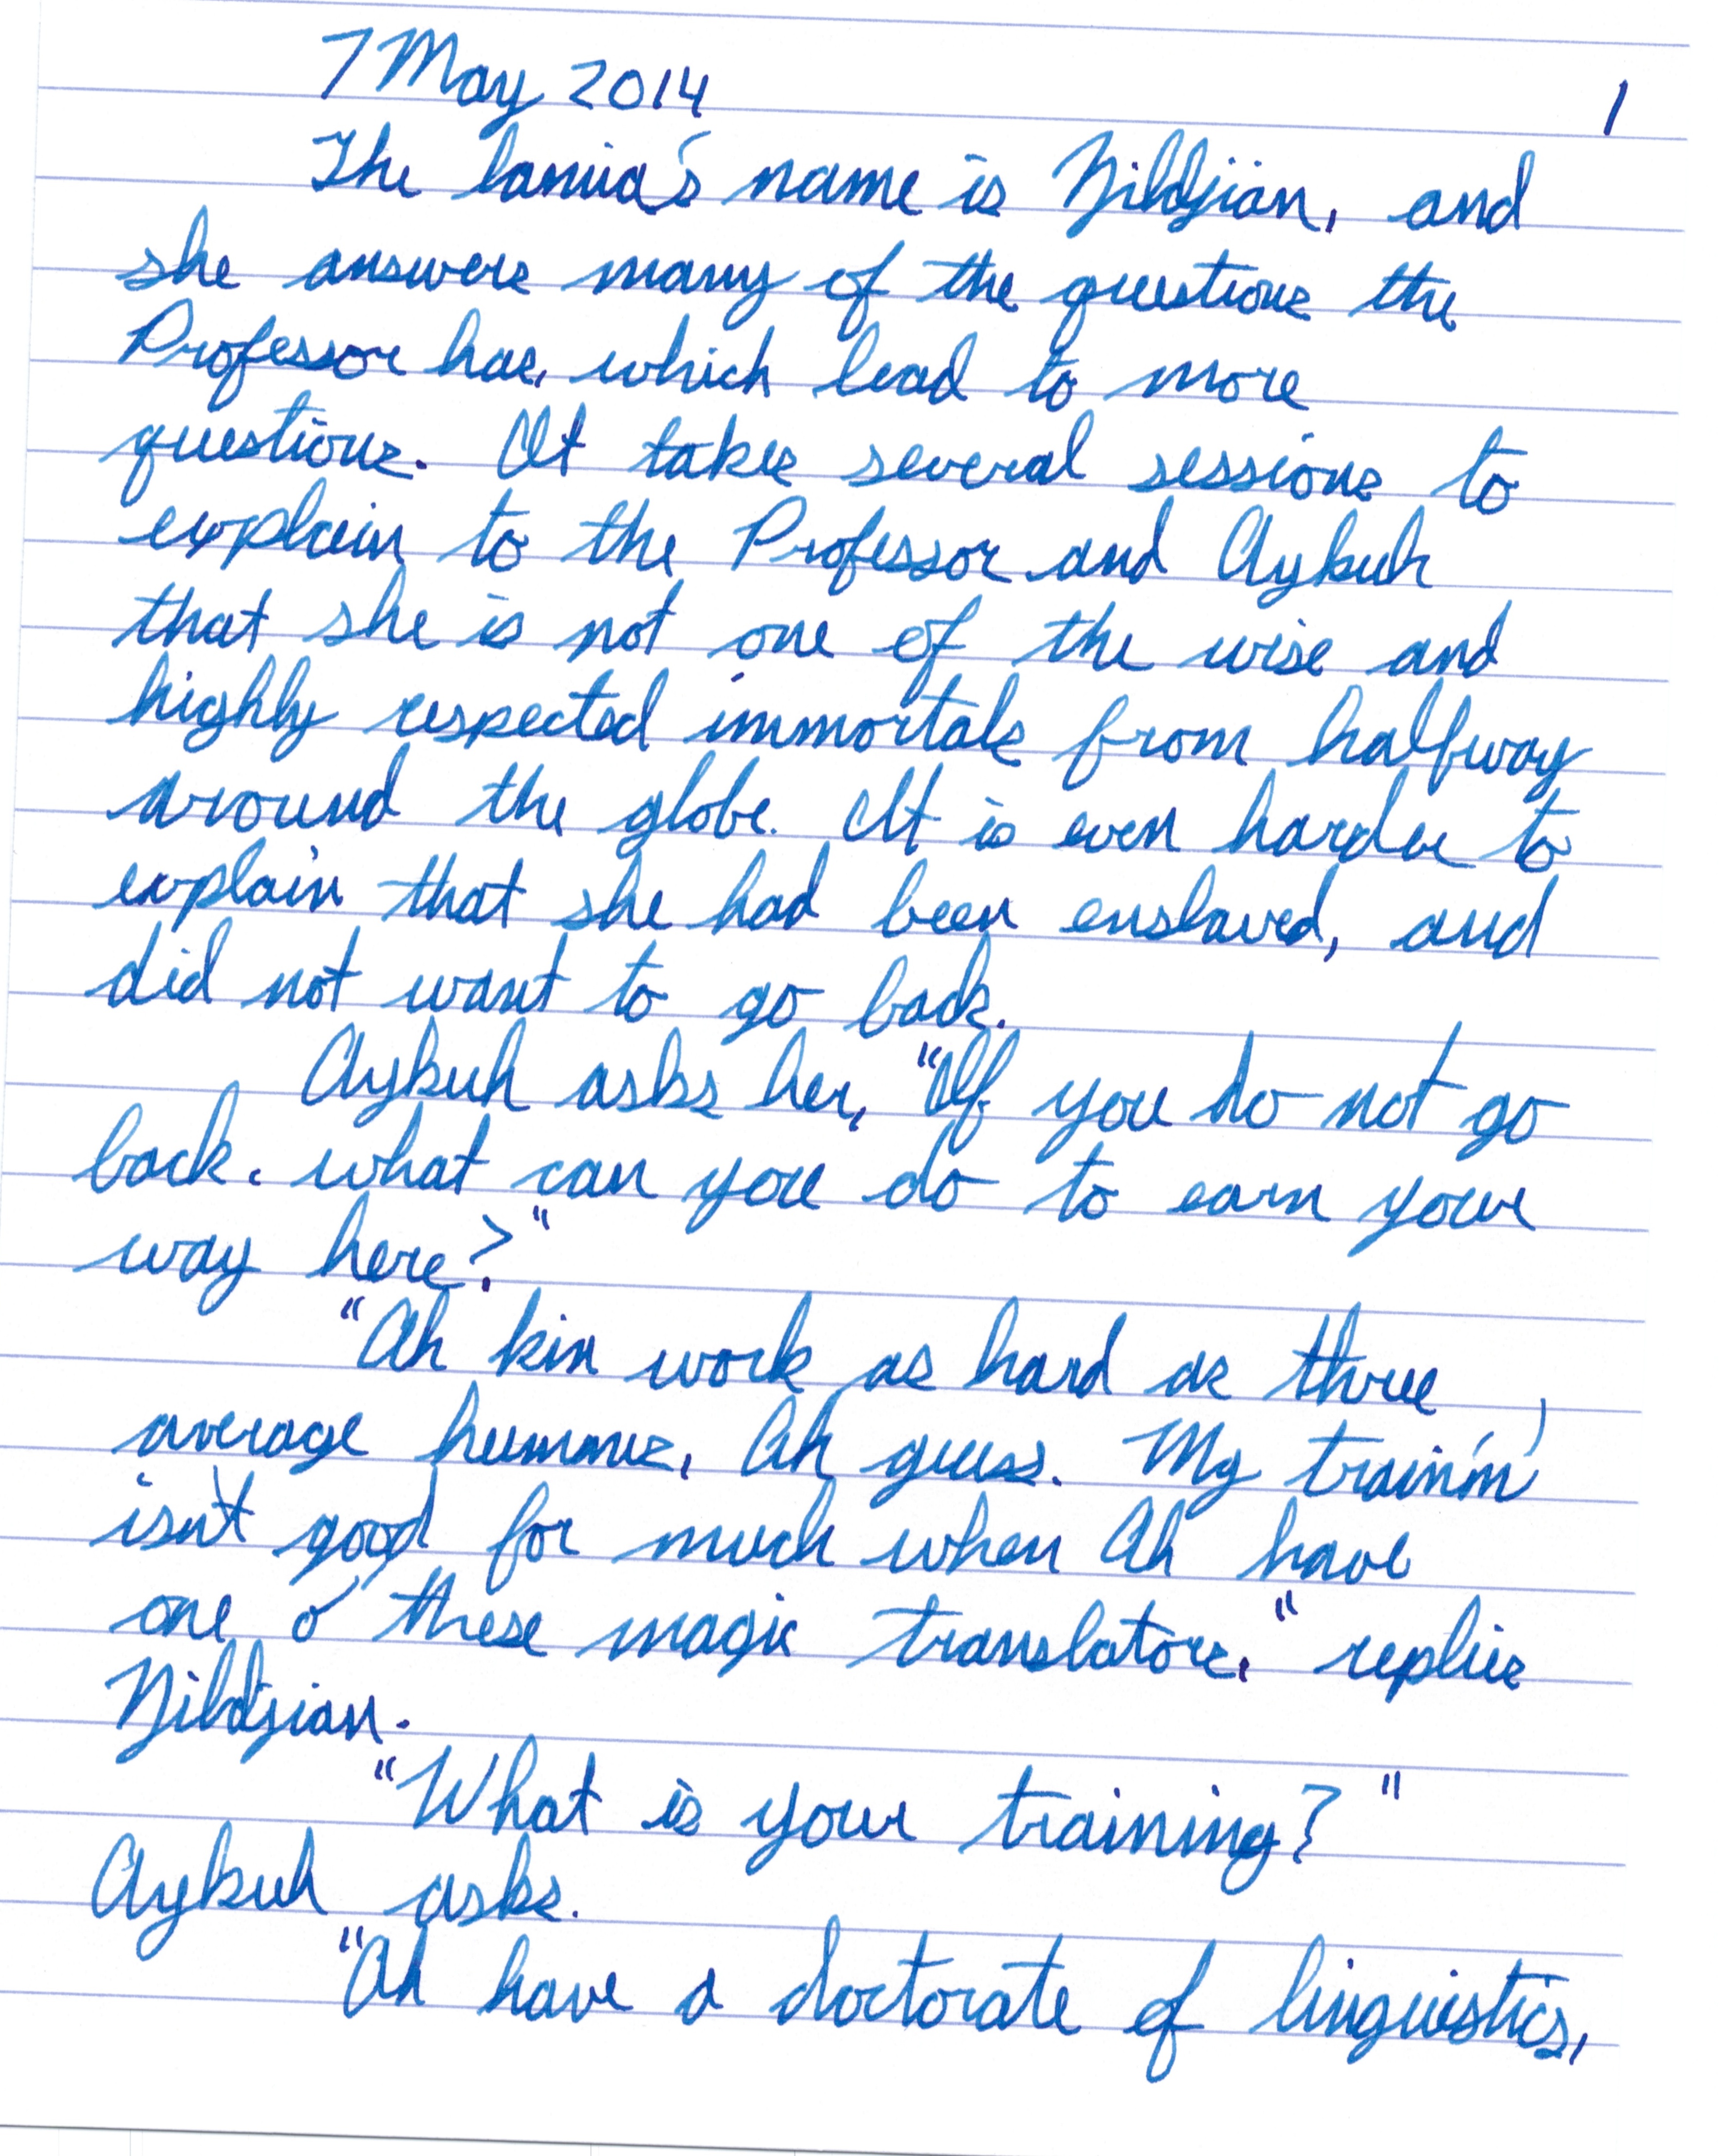 7 May 2014 1
The lamia's name is Zildjian, and
she answers many of the questions the
Professor has, which lead to more
questions. It takes several sessions to
explain to the Professor and Aykuh
that she is not one of the wise and
highly respected immortals from halfway
around the globe. It is even harder to
explain that she had been enslaved, and
did not want to go back.
Aykuh asks her, "If you do not go
back, what can you do to earn your
way here?"
"Ah kin work as hard as three
average humans, Ah guess. My trainin'
isn't good for much when Ah have
one o' these magic translators," replies
Zildjian.
"What is your training?"
Aykuh asks.
"Ah have a doctorate of linguistics,